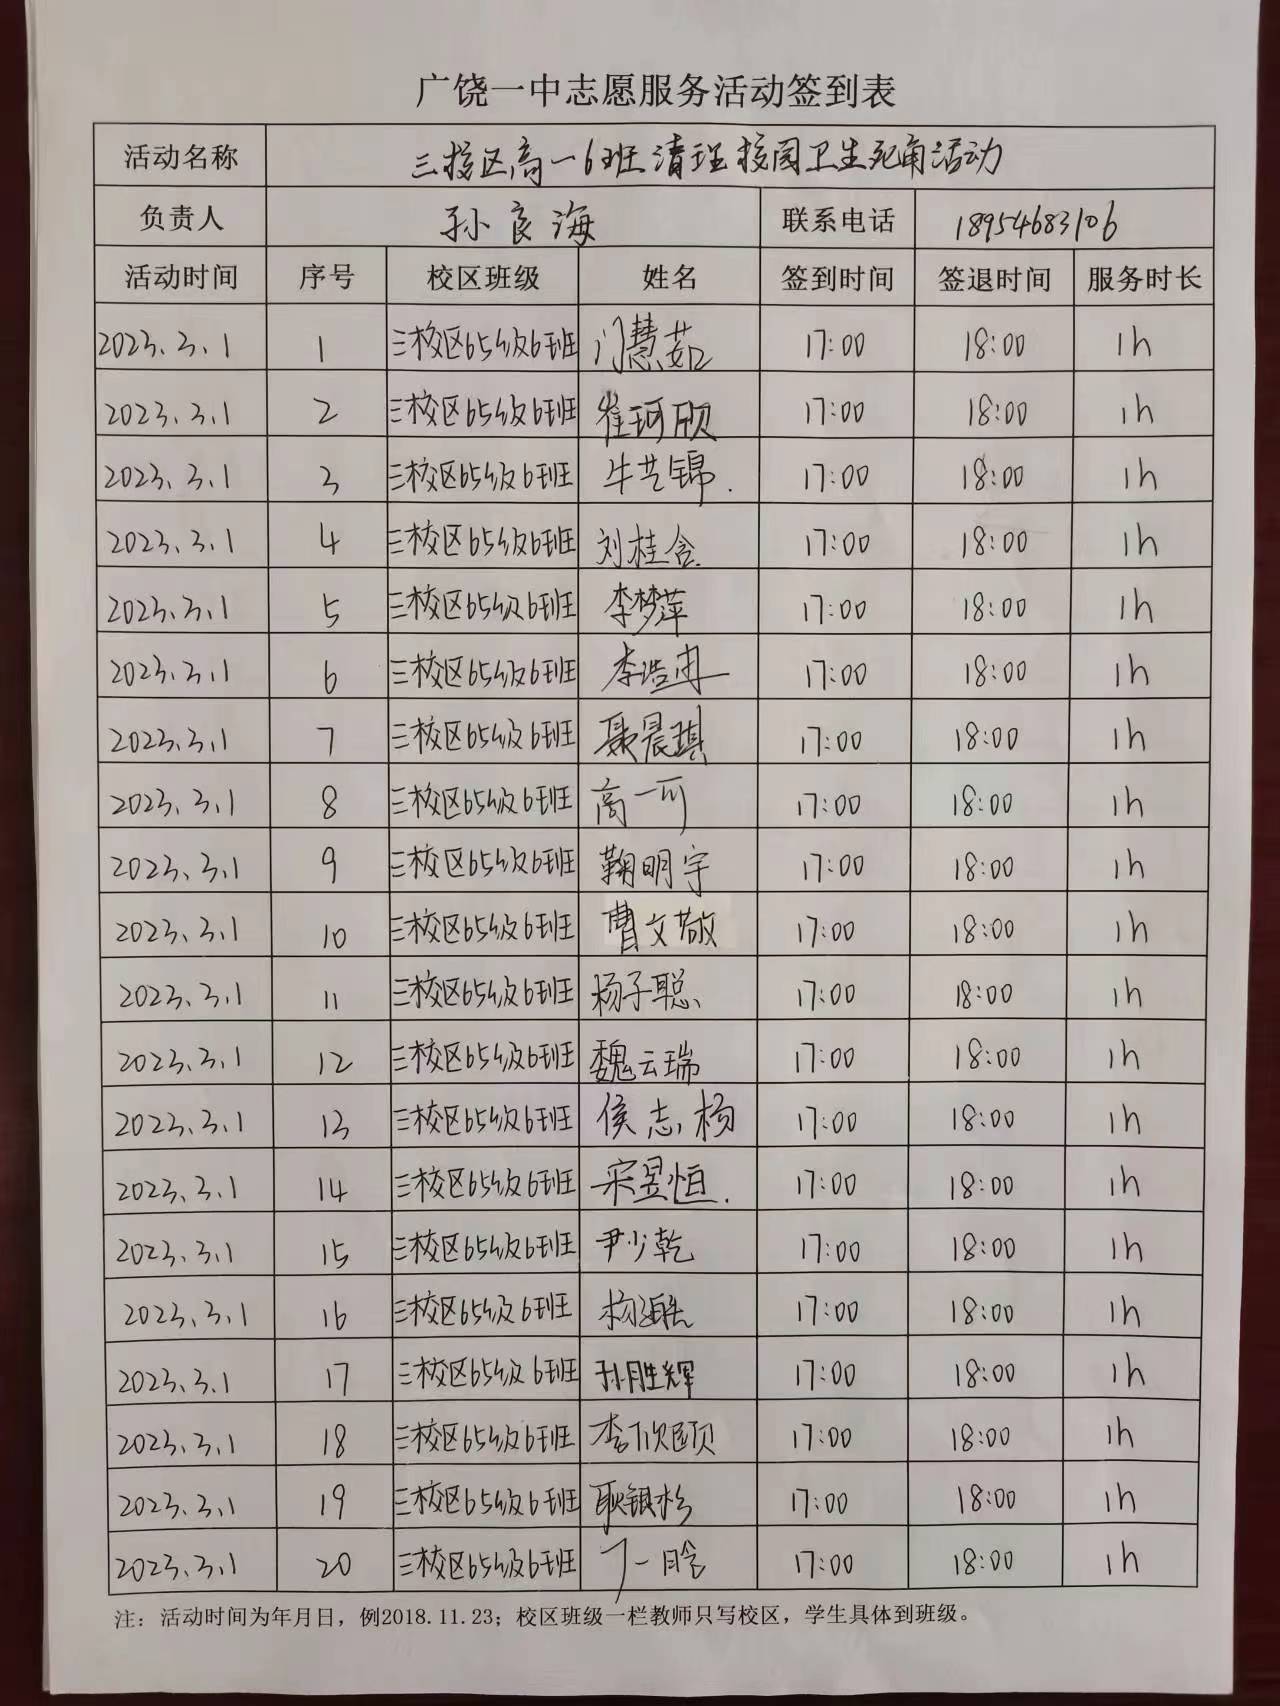 广饶一中志愿服务活动签到表
活动名称 三校区高一6班清理校园卫生死角活动
负责人 孙良海 联系电话 18954683106
活动时间 序号 校区班级 姓名 签到时间 签退时间 服务时长
2023.3.1 1 三校区65级6班 门慧茹 17:00 18:00 1h
2023.3.1 2 三校区65级6班 崔珂欣 17:00 18:00 1h
2023.3.1 3 三校区65级6班 牛艺锦. 17:00 18:00 1h
2023.3.1 4 三校区65级6班 刘桂含 17:00 18:00 1h
2023.3.1 5 三校区65级6班 李梦萍 17:00 18:00 1h
2023.3.1 6 三校区65级6班 李浩冉 17:00 18:00 1h
2023.3.1 7 三校区65级6班 聂晨琪 17:00 18:00 1h
2023.3.1 8 三校区65级6班 高一可 17:00 18:00 1h
2023.3.1 9 三校区65级6班 鞠明宇 17:00 18:00 1h
2023.3.1 10 三校区65级6班 曹文敬 17:00 18:00 1h
2023.3.1 11 三校区65级6班 杨子聪 17:00 18:00 1h
2023.3.1 12 三校区65级6班 魏云瑞 17:00 18:00 1h
2023.3.1 13 三校区65级6班 侯志杨 17:00 18:00 1h
2023.3.1 14 三校区65级6班 宋昱恒. 17:00 18:00 1h
2023.3.1 15 三校区65级6班 尹少乾 17:00 18:00 1h
2023.3.1 16 三校区65级6班 17:00 18:00 1h
2023.3.1 17 三校区65级6班 孙胜辉 17:00 18:00 1h
2023.3.1 18 三校区65级6班 李欣颐 17:00 18:00 1h
2023.3.1 19 三校区65级6班 耿银杉 17:00 18:00 1h
2023.3.1 20 三校区65级6班 丁一晗 17:00 18:00 1h
注：活动时间为年月日，例2018.11.23；校区班级一栏教师只写校区，学生具体到班级。